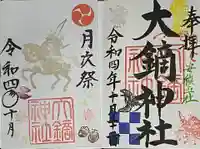 奉拝
大鏑神社
令和四年十月十一日
月次祭
令和四年十月
大鏑神社